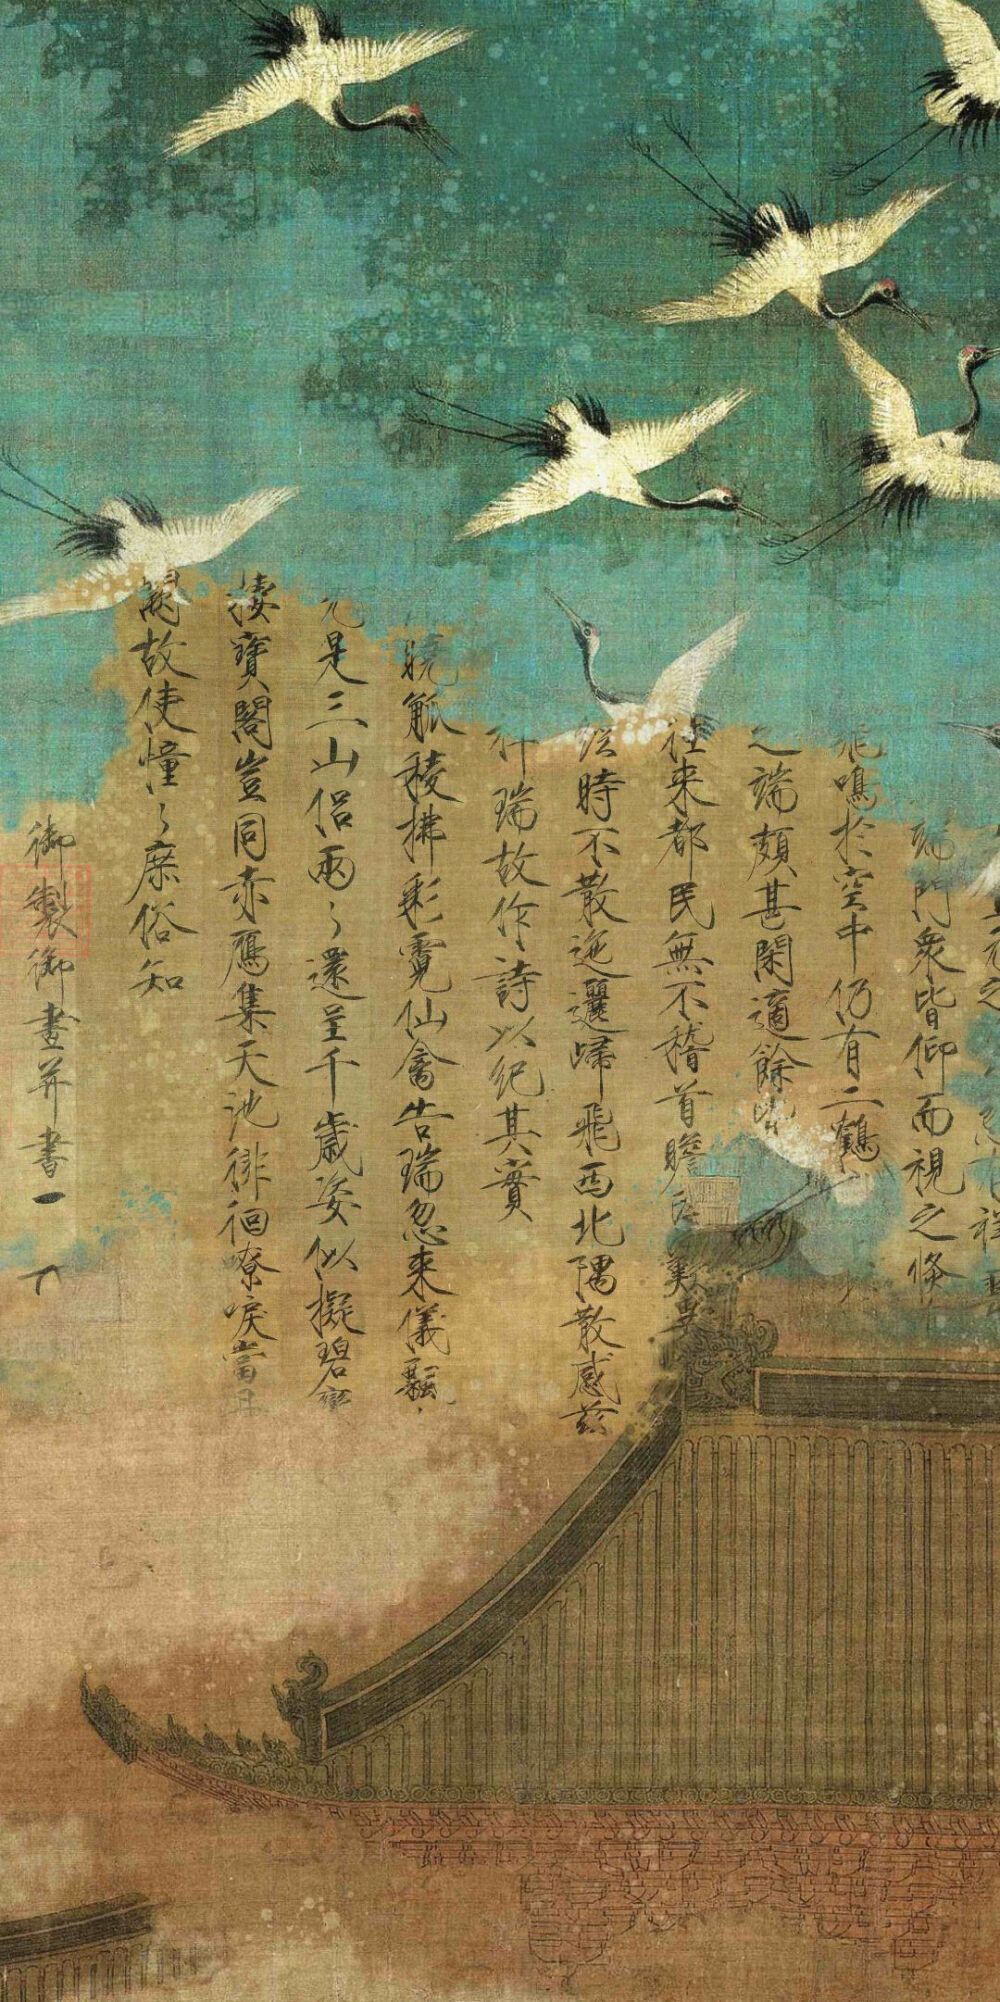 元之
端門衆皆仰而視之倏
飛鳴於空中仍有二鶴
之端頗甚閑適餘皆
往来都民無不稽首瞻歎異
經時不散迤邐歸飛西北隅散感兹
祥瑞故作詩以紀其實
曉觚稜拂彩霓仙禽告瑞忽来儀飄
元是三山侶兩〻還呈千歲姿似擬碧鸞
棲寶閣豈同赤鴈集天池徘徊嘹唳當丹
闕故使憧〻庶俗知
御製御畫并書